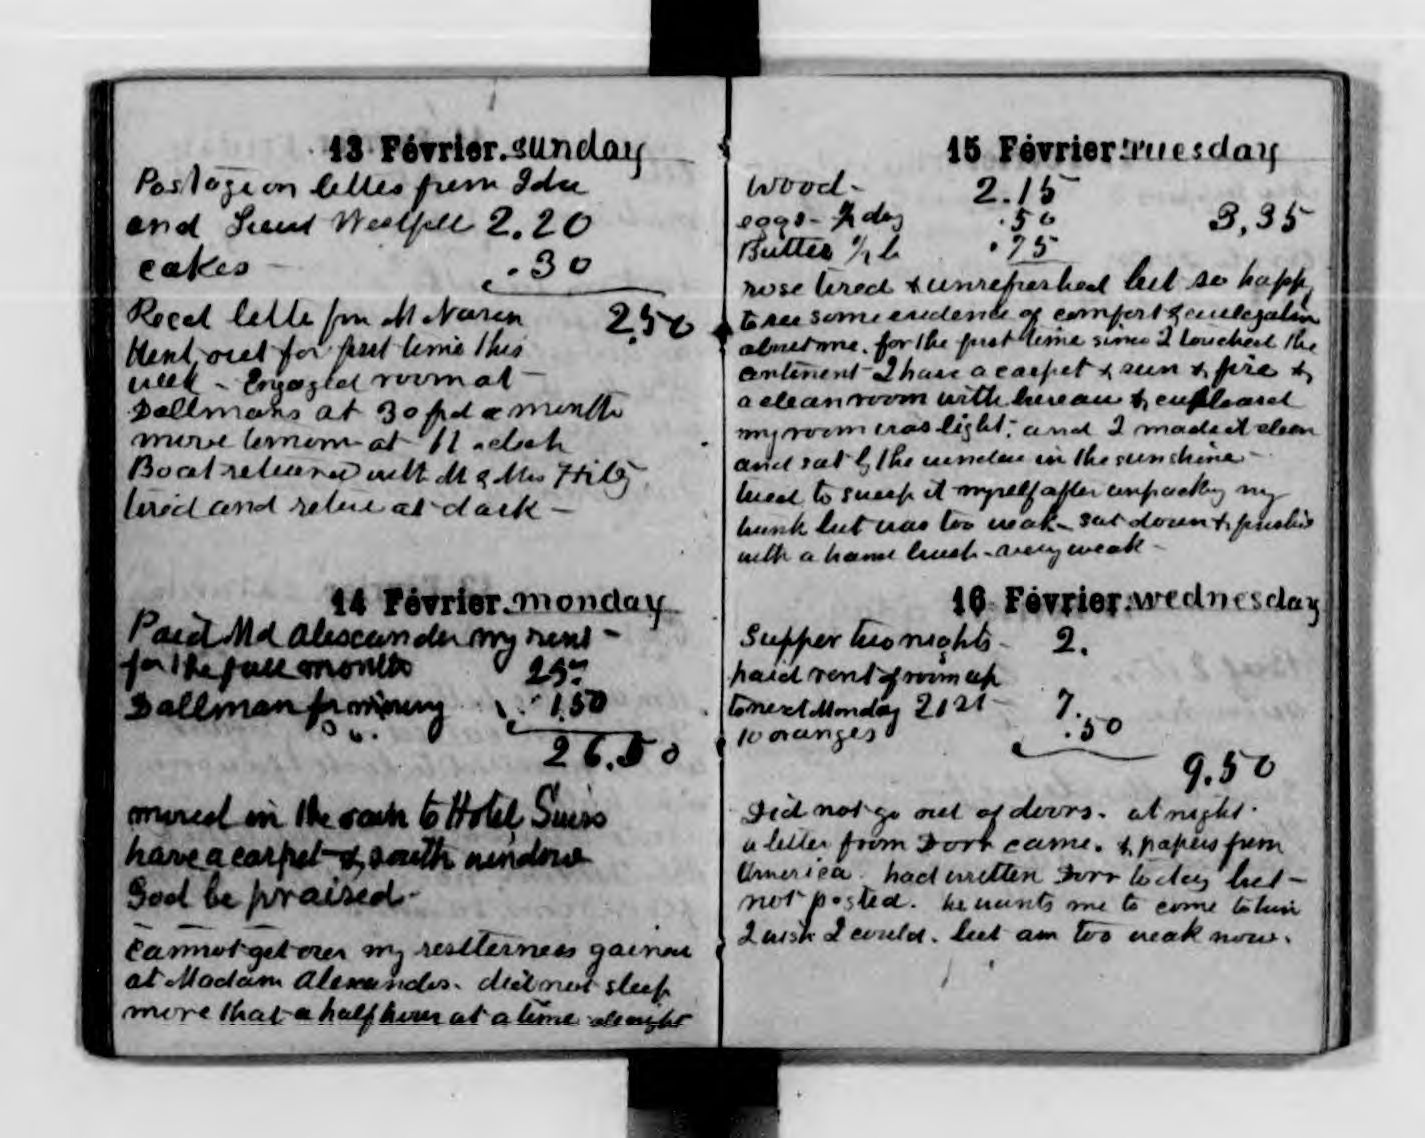 13 Février. Sunday
Postage on letter from Ida
and Lieut 2.20
cakes - .30
2.50
Recd letter from McNaren
Went out for first time this
week - Engaged room at -
Dallmans at 30 frd a month
move tomorrow at 11 oclock
Boat returned with M & Mrs
tired and retire at dark -
14 Février. monday
Paid Md Alexander my rent -
for the full month 25.
Dallman for moving 1.50
26.50
moved in the rain to Hotel Suiss
have a carpet & south window
God be praised -
Cannot get over my restlerness gained
at Madam Alexanders. did not sleep
more that a half hour at a time all night
15 Février. Tuesday
Wood - 2.15
eggs - ½ doz .50 3,35
Butter ½ lb .75
rose tired & unrefreshed but so happy
to see some evidence of comfort & civilization
about me. for the first time since I touched the
continent - I have a carpet & sun & fire &
a clean room with bureau & cupboard
my room was light; and I made it clean
and sat by the window in the sunshine -
tried to sweep it myself after unpacking my
trunk but was too weak - sat down &
with a hand brush - very weak -
16 Février. wednesday
Supper two nights - 2.
paid rent of room up
to next Monday 21st - 7.
10 oranges .50
9.50
Did not go out of doors. at night.
a letter from Dorr came. & papers from
America. had written Dorr today but -
not posted. he wants me to come to him
I wish I could. but am too weak now.